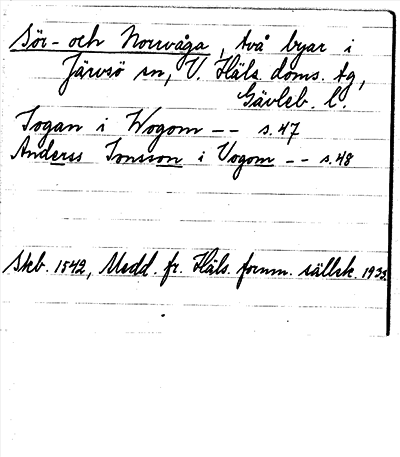 Sör- och Norrvåga, två byar i
Järvsö sn, V. Häls. doms. tg,
Gävleb. l.
Jogan i Wogom -- s. 47
Anderss Jonsson i Vogom -- s. 48
Skb. 1542, Medd. fr. Häls. fornm. sällsk. 1935